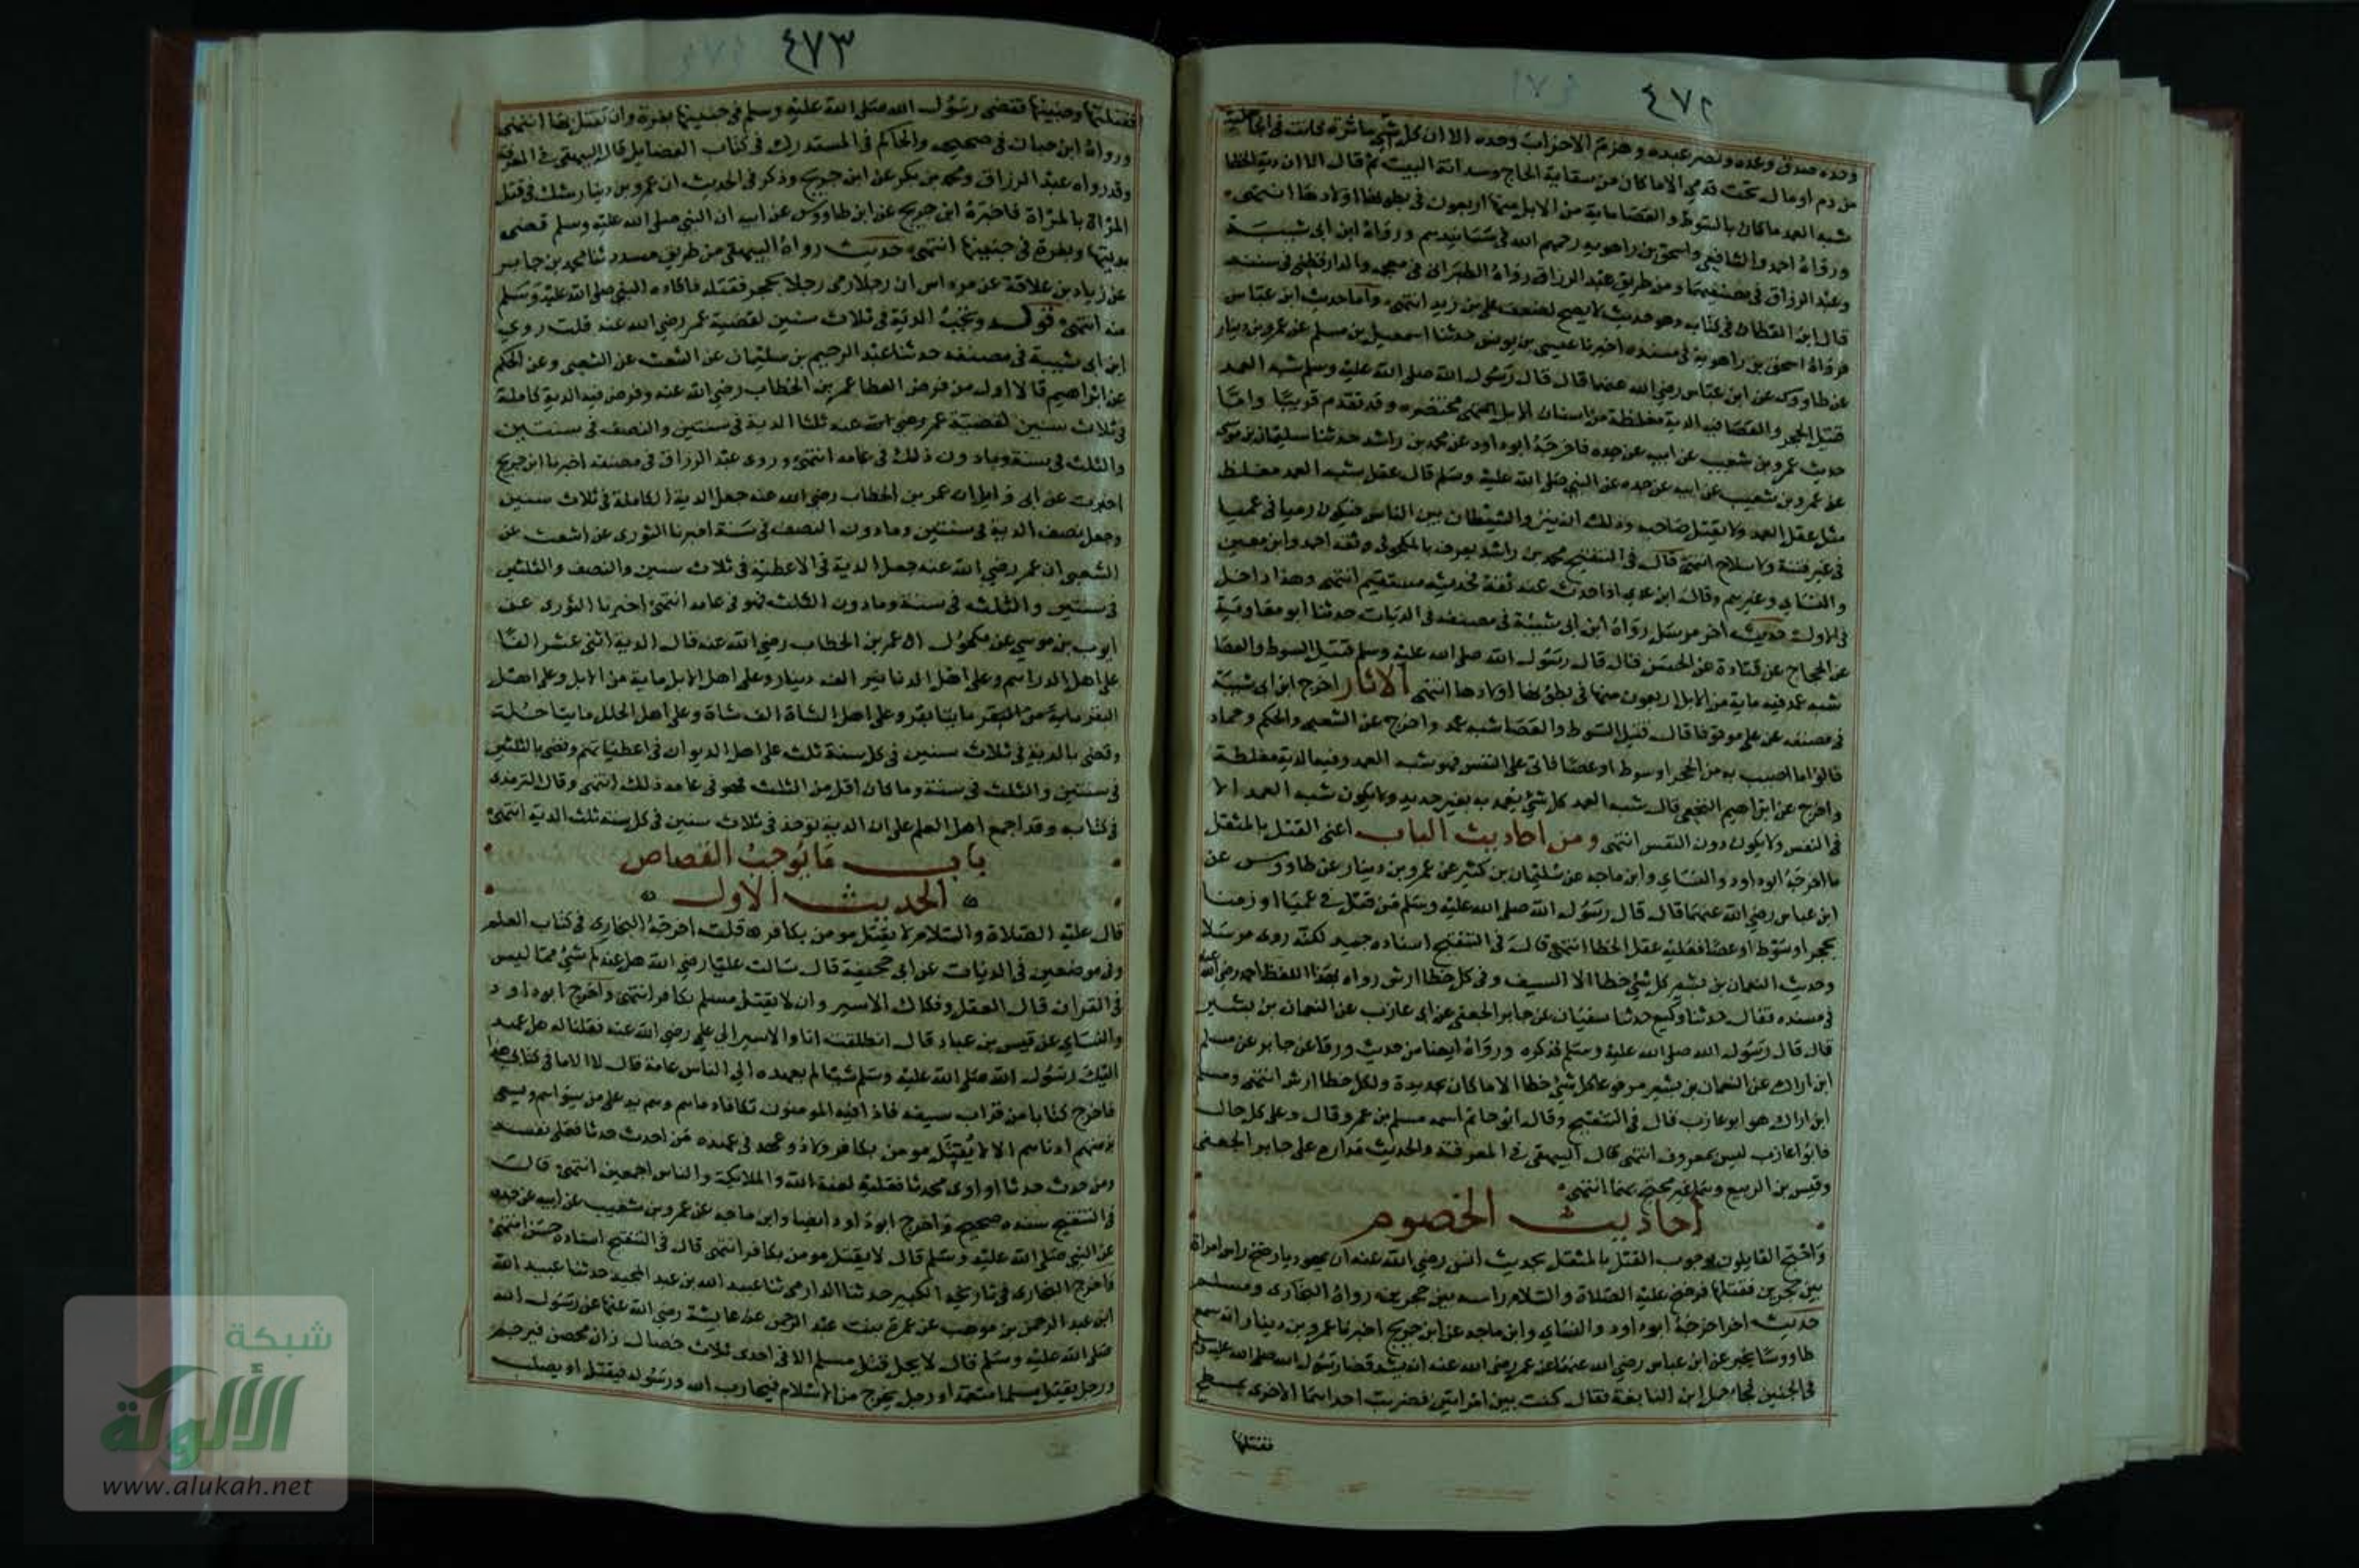 ٤٧٢
وحده صدق وعده ونصر عبده وهزم الاحزاب وحده الا ان كل شي ماثرة كانت في الجاهلية
من دم او مال تحت قدمي الا ما كان من سقاية الحاج وسدانة البيت ثم قال الا ان دية الخطا
شبه العمد ما كان بالسوط والعصا ماية من الابل منها اربعون في بطونها اولادها انتهى
ورواه احمد والشافعي واسحق بن راهويه رحمهم الله في مسانيدهم ورواه ابن ابي شيبة
وعبد الرزاق في مصنفيهما ومن طريق عبد الرزاق رواه الطبراني في معجمه والدارقطني في سننه
قال ابن القطان في كتابه وهو حديث لا يصح لضعف علي بن زيد انتهى واما حديث ابن عباس
فرواه اسحق بن راهويه في مسنده اخبرنا عيسى بن يونس حدثنا اسمعيل بن مسلم عن عمرو بن دينار
عن طاووس عن ابن عباس رضي الله عنهما قال قال رسول الله صلى الله عليه وسلم شبه العمد
قتيل الحجر والعصا فيه الدية مغلظة من اسنان الابل انتهى مختصره وقد تقدم قريبا واما
حديث عمرو بن شعيب عن ابيه عن جده فاخرجه ابو داود عن محمد بن راشد حدثنا سليمان بن موسى
عن عمرو بن شعيب عن ابيه عن جده عن النبي صلى الله عليه وسلم قال عقل شبه العمد مغلظ
مثل عقل العمد ولا يقتل صاحبه وذلك ان ينزو الشيطان بين الناس فيكون رميا في عميا
في غير فتنة ولا سلاح انتهى قال في التنقيح محمد بن راشد يعرف بالمكحولي وثقه احمد وابن معين
والنساي وغيرهم وقال ابن عدي اذا حدث عنه ثقة فحديثه مستقيم انتهى وهذا داخل
في الاول حديث اخر مرسل رواه ابن ابي شيبة في مصنفه في الديات حدثنا ابو معاوية
عن الحجاج عن قتادة عن الحسن قال قال رسول الله صلى الله عليه وسلم قتيل السوط والعصا
شبه عمد فيه ماية من الابل اربعون منها في بطونها اولادها انتهى الاثار اخرج ابن ابي شيبة
في مصنفه عن علي موقوفا قال قتيل السوط والعصا شبه عمد واخرج عن الشعبي والحكم وحماد
قالوا ما اصيب به من الحجر او سوط او عصا فاتى على النفس فهو شبه العمد وفيه الدية مغلظة
واخرج عن ابراهيم النخعي قال شبه العمد كل شي يعمد به بغير حديد ولا يكون شبه العمد الا
في النفس ولا يكون دون النفس انتهى ومن احاديث الباب اعني القتل بالمثقل
ما اخرجه ابو داود والنساي وابن ماجه عن سليمان بن كثير عن عمرو بن دينار عن طاووس عن
ابن عباس رضي الله عنهما قال قال رسول الله صلى الله عليه وسلم من قتل في عميا او رميا
بحجر او سوط او عصا فعليه عقل الخطا انتهى قال في التنقيح اسناده جيد لكنه روي مرسلا
وحديث النعمان بن بشير كل شي خطا الا السيف وفي كل خطا ارش رواه بهذا اللفظ احمد رضي الله عنه
في مسنده فقال حدثنا وكيع حدثنا سفيان عن جابر الجعفي عن ابي عازب عن النعمان بن بشير
قال قال رسول الله صلى الله عليه وسلم فذكره ورواه ايضا من حديث ورقا عن جابر عن مسلم
ابن اراك عن النعمان بن بشير مرفوعا كل شي خطا الا ما كان بحديدة ولكل خطا ارش انتهى ومسلم
ابن اراك هو ابو عازب قال في التنقيح وقال ابو حاتم اسمه مسلم بن عمرو وقال وعلى كل حال
فابو عازب ليس بمعروف انتهى قال البيهقي في المعرفة والحديث مداره على جابر الجعفي
وقيس بن الربيع وهما غير محتج بهما انتهى
احاديث الخصوم
واحتج القايلون بوجوب القتل بالمثقل بحديث انس رضي الله عنه ان يهوديا رضخ راس امراة
بين حجرين فقتلها فرضخ عليه الصلاة والسلام راسه بين حجرين رواه البخاري ومسلم
حديث اخر اخرجه ابو داود والنساي وابن ماجه عن ابن جريج اخبرنا عمرو بن دينار انه سمع
طاووسا يخبر عن ابن عباس رضي الله عنهما عن عمر رضي الله عنه انه نشد قضا رسول الله صلى الله عليه وسلم
في الجنين فجاء حمل ابن النابغة فقال كنت بين امراتين فضربت احداهما الاخرى بمسطح
فقتلتها
٤٧٣
فقتلتها وجنينها فقضى رسول الله صلى الله عليه وسلم في جنينها بغرة وان تقتل بها انتهى
ورواه ابن حبان في صحيحه والحاكم في المستدرك في كتاب الفضايل قال البيهقي في المعرفة
وقد رواه عبد الرزاق ومحمد بن بكر عن ابن جريج وذكر في الحديث ان عمرو بن دينار شك في قتل
المراة بالمراة فاخبره ابن جريج عن ابن طاووس عن ابيه ان النبي صلى الله عليه وسلم قضى
بديتها وبغرة في جنينها انتهى حديث رواه البيهقي من طريق مسدد ثنا محمد بن جابر
عن زياد بن علاقة عن مرداس ان رجلا رمى رجلا بحجر فقتله فاقاده النبي صلى الله عليه وسلم
منه انتهى قوله وتجب الدية في ثلاث سنين لقضية عمر رضي الله عنه قلت روى
ابن ابي شيبة في مصنفه حدثنا عبد الرحيم بن سليمان عن اشعث عن الشعبي وعن الحكم
عن ابراهيم قالا اول من فرض العطا عمر بن الخطاب رضي الله عنه وفرض فيه الدية كاملة
في ثلاث سنين لقضية عمر رضي الله عنه ثلثا الدية في سنتين والنصف في سنتين
والثلث في سنة وما دون ذلك في عامه انتهى وروى عبد الرزاق في مصنفه اخبرنا ابن جريج
اخبرت عن ابي وايل ان عمر بن الخطاب رضي الله عنه جعل الدية الكاملة في ثلاث سنين
وجعل نصف الدية في سنتين وما دون النصف في سنة اخبرنا الثوري عن اشعث عن
الشعبي ان عمر رضي الله عنه جعل الدية في الاعطية في ثلاث سنين والنصف والثلثين
في سنتين والثلث في سنة وما دون الثلث فهو في عامه انتهى اخبرنا الثوري عن
ايوب بن موسى عن مكحول ان عمر بن الخطاب رضي الله عنه قال الدية اثني عشر الفا
على اهل الدراهم وعلى اهل الدنانير الف دينار وعلى اهل الابل ماية من الابل وعلى اهل
البقر مايتا بقر وعلى اهل الشاة الف شاة وعلى اهل الحلل مايتا حلة
وقضى بالدية في ثلاث سنين في كل سنة ثلث على اهل الديوان في اعطياتهم وقضى بالثلثين
في سنتين والثلث في سنة وما كان اقل من الثلث فهو في عامه ذلك انتهى وقال الترمذي
في كتابه وقد اجمع اهل العلم على ان الدية توخذ في ثلاث سنين في كل سنة ثلث الدية انتهى
باب ما يوجب القصاص
الحديث الاول
قال عليه الصلاة والسلام لا يقتل مومن بكافر قلت اخرجه البخاري في كتاب العلم
وفي موضعين في الديات عن ابي جحيفة قال سالت عليا رضي الله هل عندكم شي مما ليس
في القران قال العقل وفكاك الاسير وان لا يقتل مسلم بكافر انتهى واخرج ابو داود
والنساي عن قيس بن عباد قال انطلقت انا والاسير الى علي رضي الله عنه فقلنا له هل عهد
اليك رسول الله صلى الله عليه وسلم شيا لم يعهده الى الناس عامة قال لا الا ما في كتابي هذا
فاخرج كتابا من قراب سيفه فاذا فيه المومنون تكافا دماهم وهم يد على من سواهم ويسعى
بذمتهم ادناهم الا لا يقتل مومن بكافر ولا ذو عهد في عهده من احدث حدثا فعلى نفسه
ومن حدث حدثا او اوى محدثا فعليه لعنة الله والملايكة والناس اجمعين انتهى قال
في التنقيح سنده صحيح واخرج ابو داود ايضا وابن ماجه عن عمرو بن شعيب عن ابيه عن جده
عن النبي صلى الله عليه وسلم قال لا يقتل مومن بكافر انتهى قال في التنقيح اسناده حسن انتهى
واخرج البخاري في تاريخه الكبير حدثنا الدارمي ثنا عبيد الله بن عبد المجيد حدثنا عبيد الله
ابن عبد الرحمن بن موهب عن عمرة بنت عبد الرحمن عن عايشة رضي الله عنها عن رسول الله
صلى الله عليه وسلم قال لا يحل قتل مسلم الا في احدى ثلاث خصال زان محصن فيرجم
ورجل يقتل مسلما متعمدا ورجل يخرج من الاسلام فيحارب الله ورسوله فيقتل او يصلب
شبكة
الألوكة
www.alukah.net